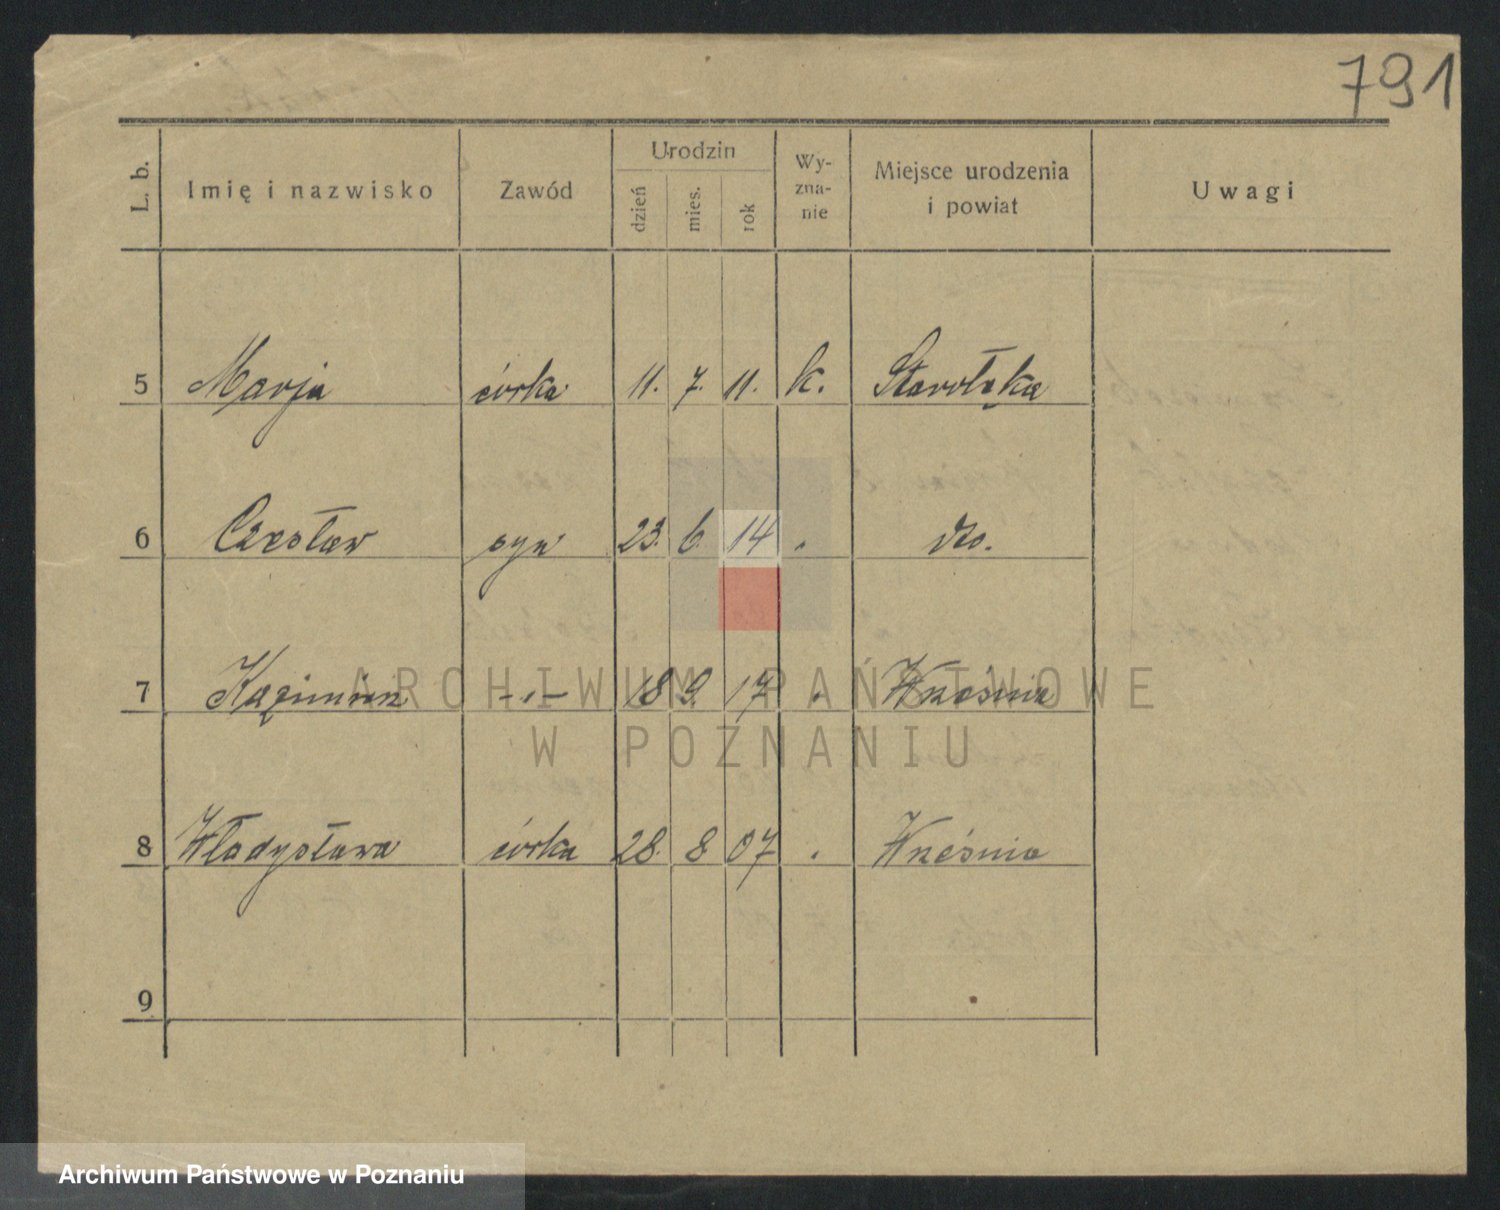 791
L. b. Imię i nazwisko Zawód Urodzin dzień mies. rok Wy-zna-nie Miejsce urodzenia i powiat Uwagi
5 Marja córka 11. 7. 11. k. Starołęka
6 Czesław syn 23. 6. 14 . dto.
7 Kazimierz -"- 18 9. 17 . Września
8 Władysława córka 28. 8 07 . Września
9
ARCHIWUM PAŃSTWOWE
W POZNANIU
Archiwum Państwowe w Poznaniu